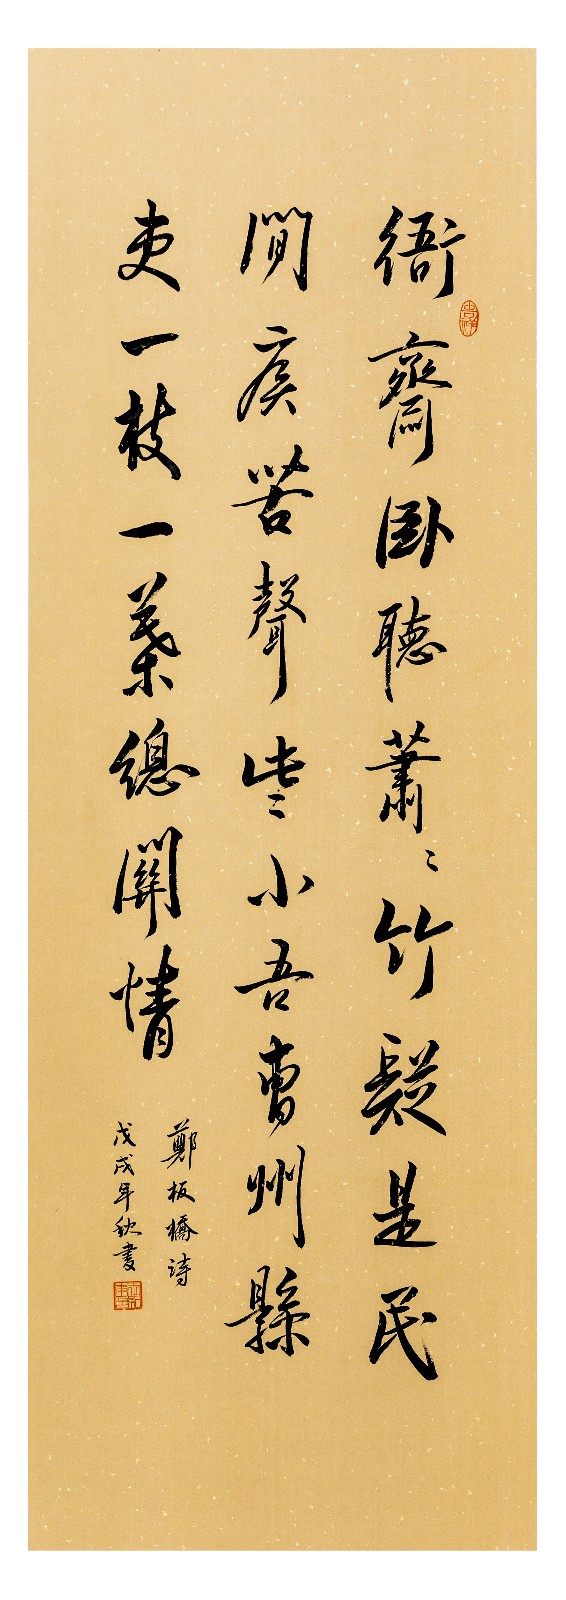 衙齋卧聽蕭〻竹疑是民
間疾苦聲些〻小吾曹州縣
吏一枝一葉總關情
鄭板橋詩
戊戌年秋書